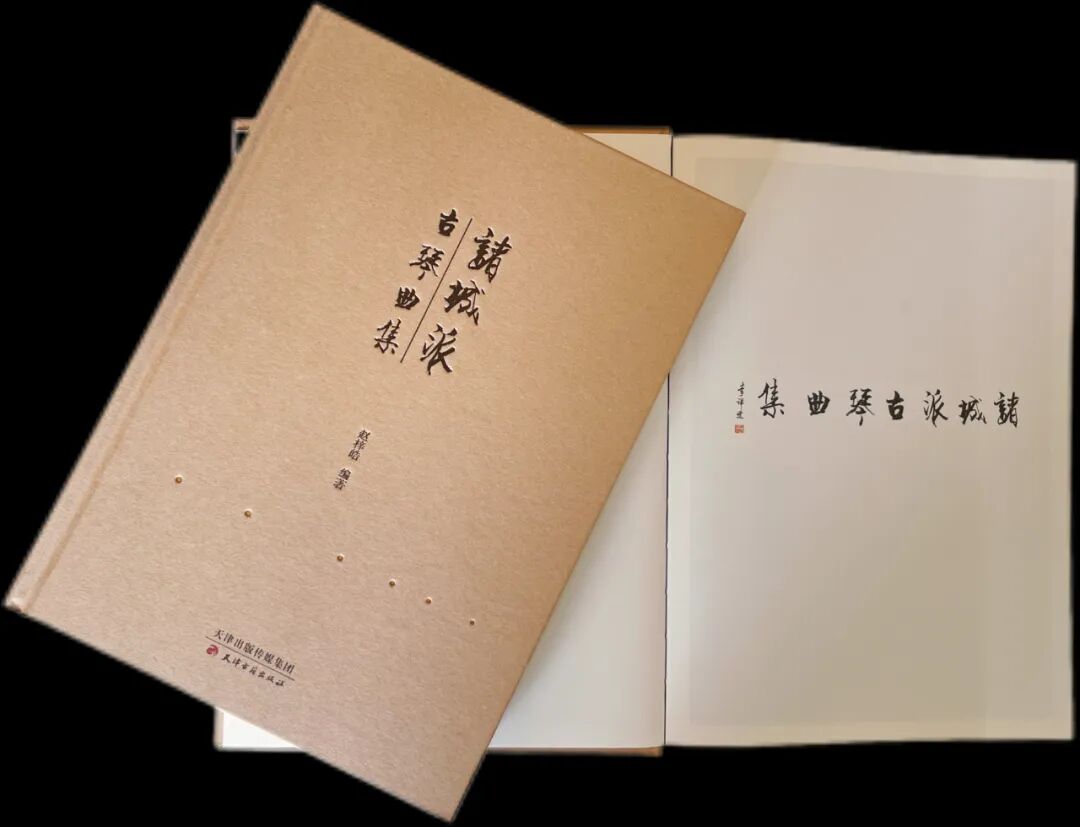 諸城派
古琴曲集
赵梓皓 编著
天津出版传媒集团
天津古籍出版社
諸城派古琴曲集
李祥霆